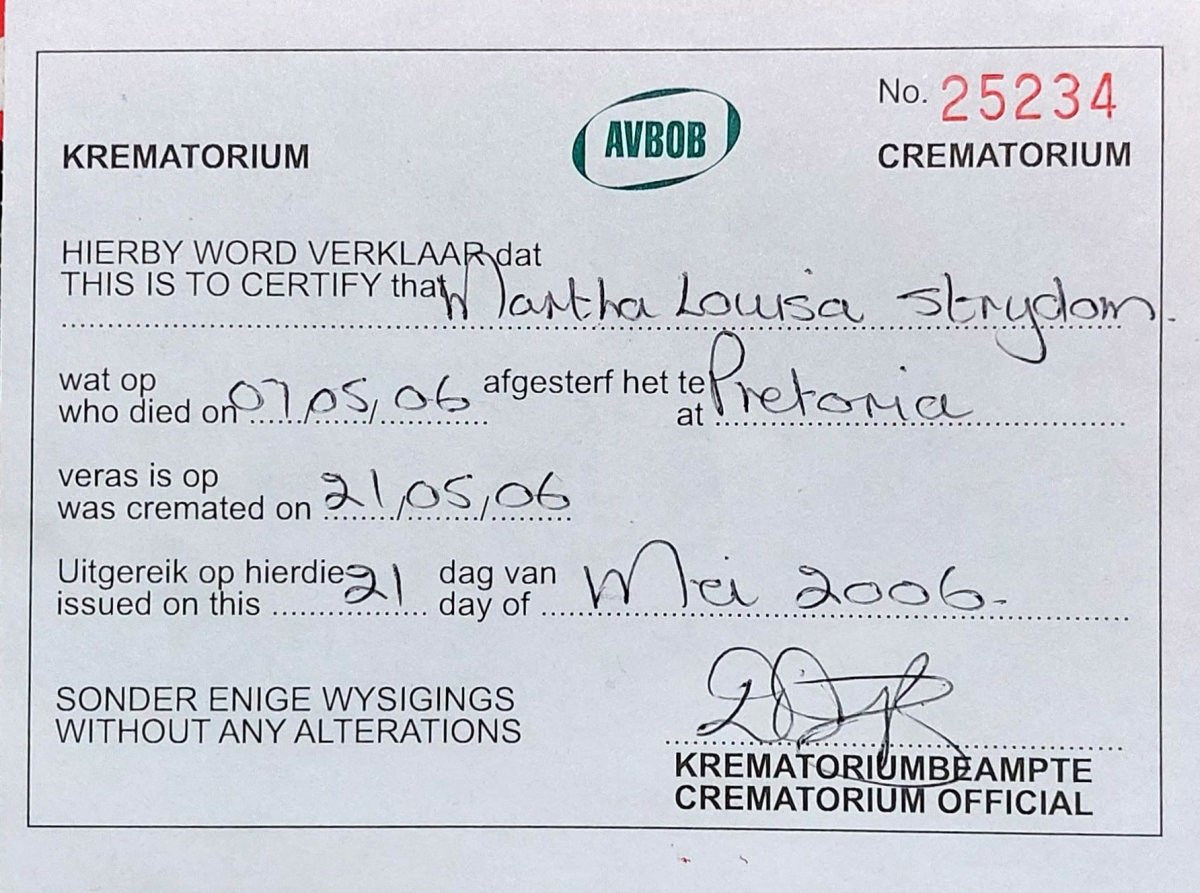 No. 25234
AVBOB
KREMATORIUM
CREMATORIUM
HIERBY WORD VERKLAAR dat
THIS IS TO CERTIFY that Martha Louisa Strydom.
wat op afgesterf het te
who died on 07/05/06 at Pretoria
veras is op
was cremated on 21/05/06
Uitgereik op hierdie 21 dag van Mei 2006-
issued on this day of
SONDER ENIGE WYSIGINGS
WITHOUT ANY ALTERATIONS
KREMATORIUMBEAMPTE
CREMATORIUM OFFICIAL